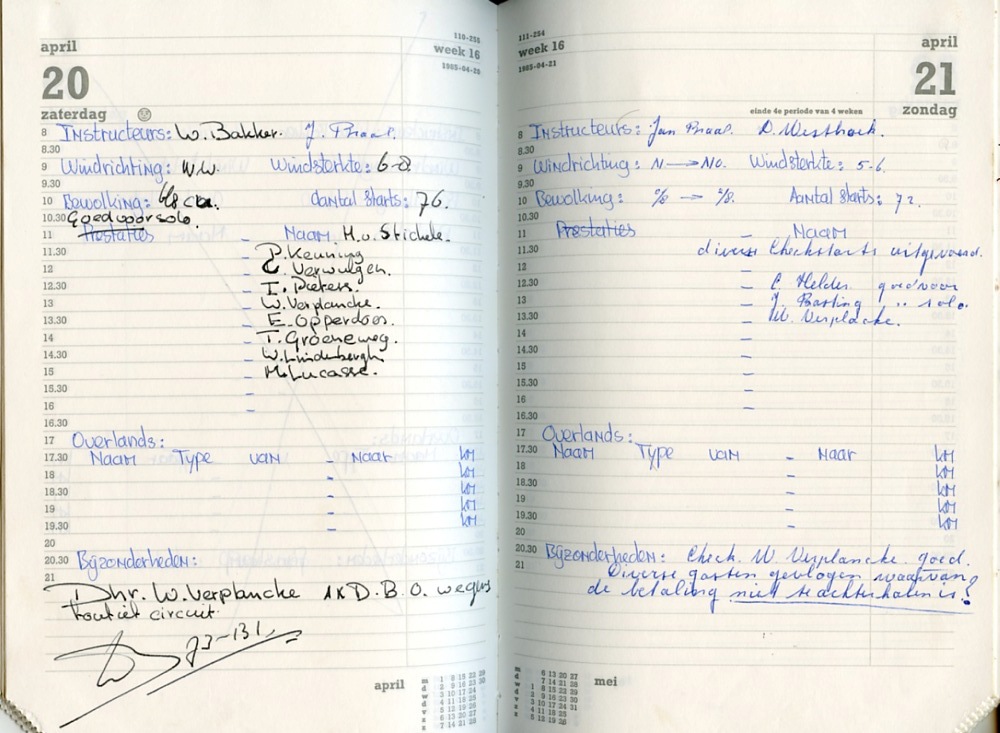 april
110-255
week 16
20
zaterdag
8 Instructeurs: W. Bakker. J. Praal.
8.30
9 Windrichting: W.W. Windsterkte: 6-8.
9.30
10 Bewolking: Aantal starts: 76.
10.30 Goed voor solo
11 Prestaties - Naam H.v. Stichele.
11.30 P. Keuning
12 - C. Verwulgen.
12.30 - I. Pieters.
13 - W. Verplancke.
13.30 - E. Opperdoes.
14 - T. Groeneweg.
14.30 - W. Lindenbergh
15 - M. Lucasse.
15.30 -
16 -
16.30
17 Overlands:
17.30 Naam Type van - Naar km
18 - km
18.30 - km
19 - km
19.30 - km
20
20.30 Bijzonderheden:
21
Dhr. W. Verplancke 1x D.B.O. wegens
foutief circuit.
73-131
april
m 1 8 15 22 29
d 2 9 16 23 30
w 3 10 17 24
d 4 11 18 25
v 5 12 19 26
z 6 13 20 27
z 7 14 21 28
111-254
week 16
1985-04-21
april
21
einde 4e periode van 4 weken
zondag
8 Instructeurs: Jan Praal. D. Westhoek.
8.30
9 Windrichting: N → NO. Windsterkte: 5-6.
9.30
10 Bewolking: 0/8 → 2/8. Aantal starts: 72.
10.30
11 Prestaties - Naam
11.30 diverse Checkstarts uitgevoerd.
12
12.30 - C. Helder goed voor
13 - J. Basting ,, solo.
13.30 - W. Verplacke.
14 -
14.30 -
15 -
15.30 -
16 -
16.30
17 Overlands:
17.30 Naam Type van - Naar km
18 - km
18.30 - km
19 - km
19.30 - km
20
20.30 Bijzonderheden: Check W Verplancke goed.
21 Diverse gasten gevlogen waarvan
de betaling niet te achterhalen is!
mei
m 6 13 20 27
d 7 14 21 28
w 1 8 15 22 29
d 2 9 16 23 30
v 3 10 17 24 31
z 4 11 18 25
z 5 12 19 26